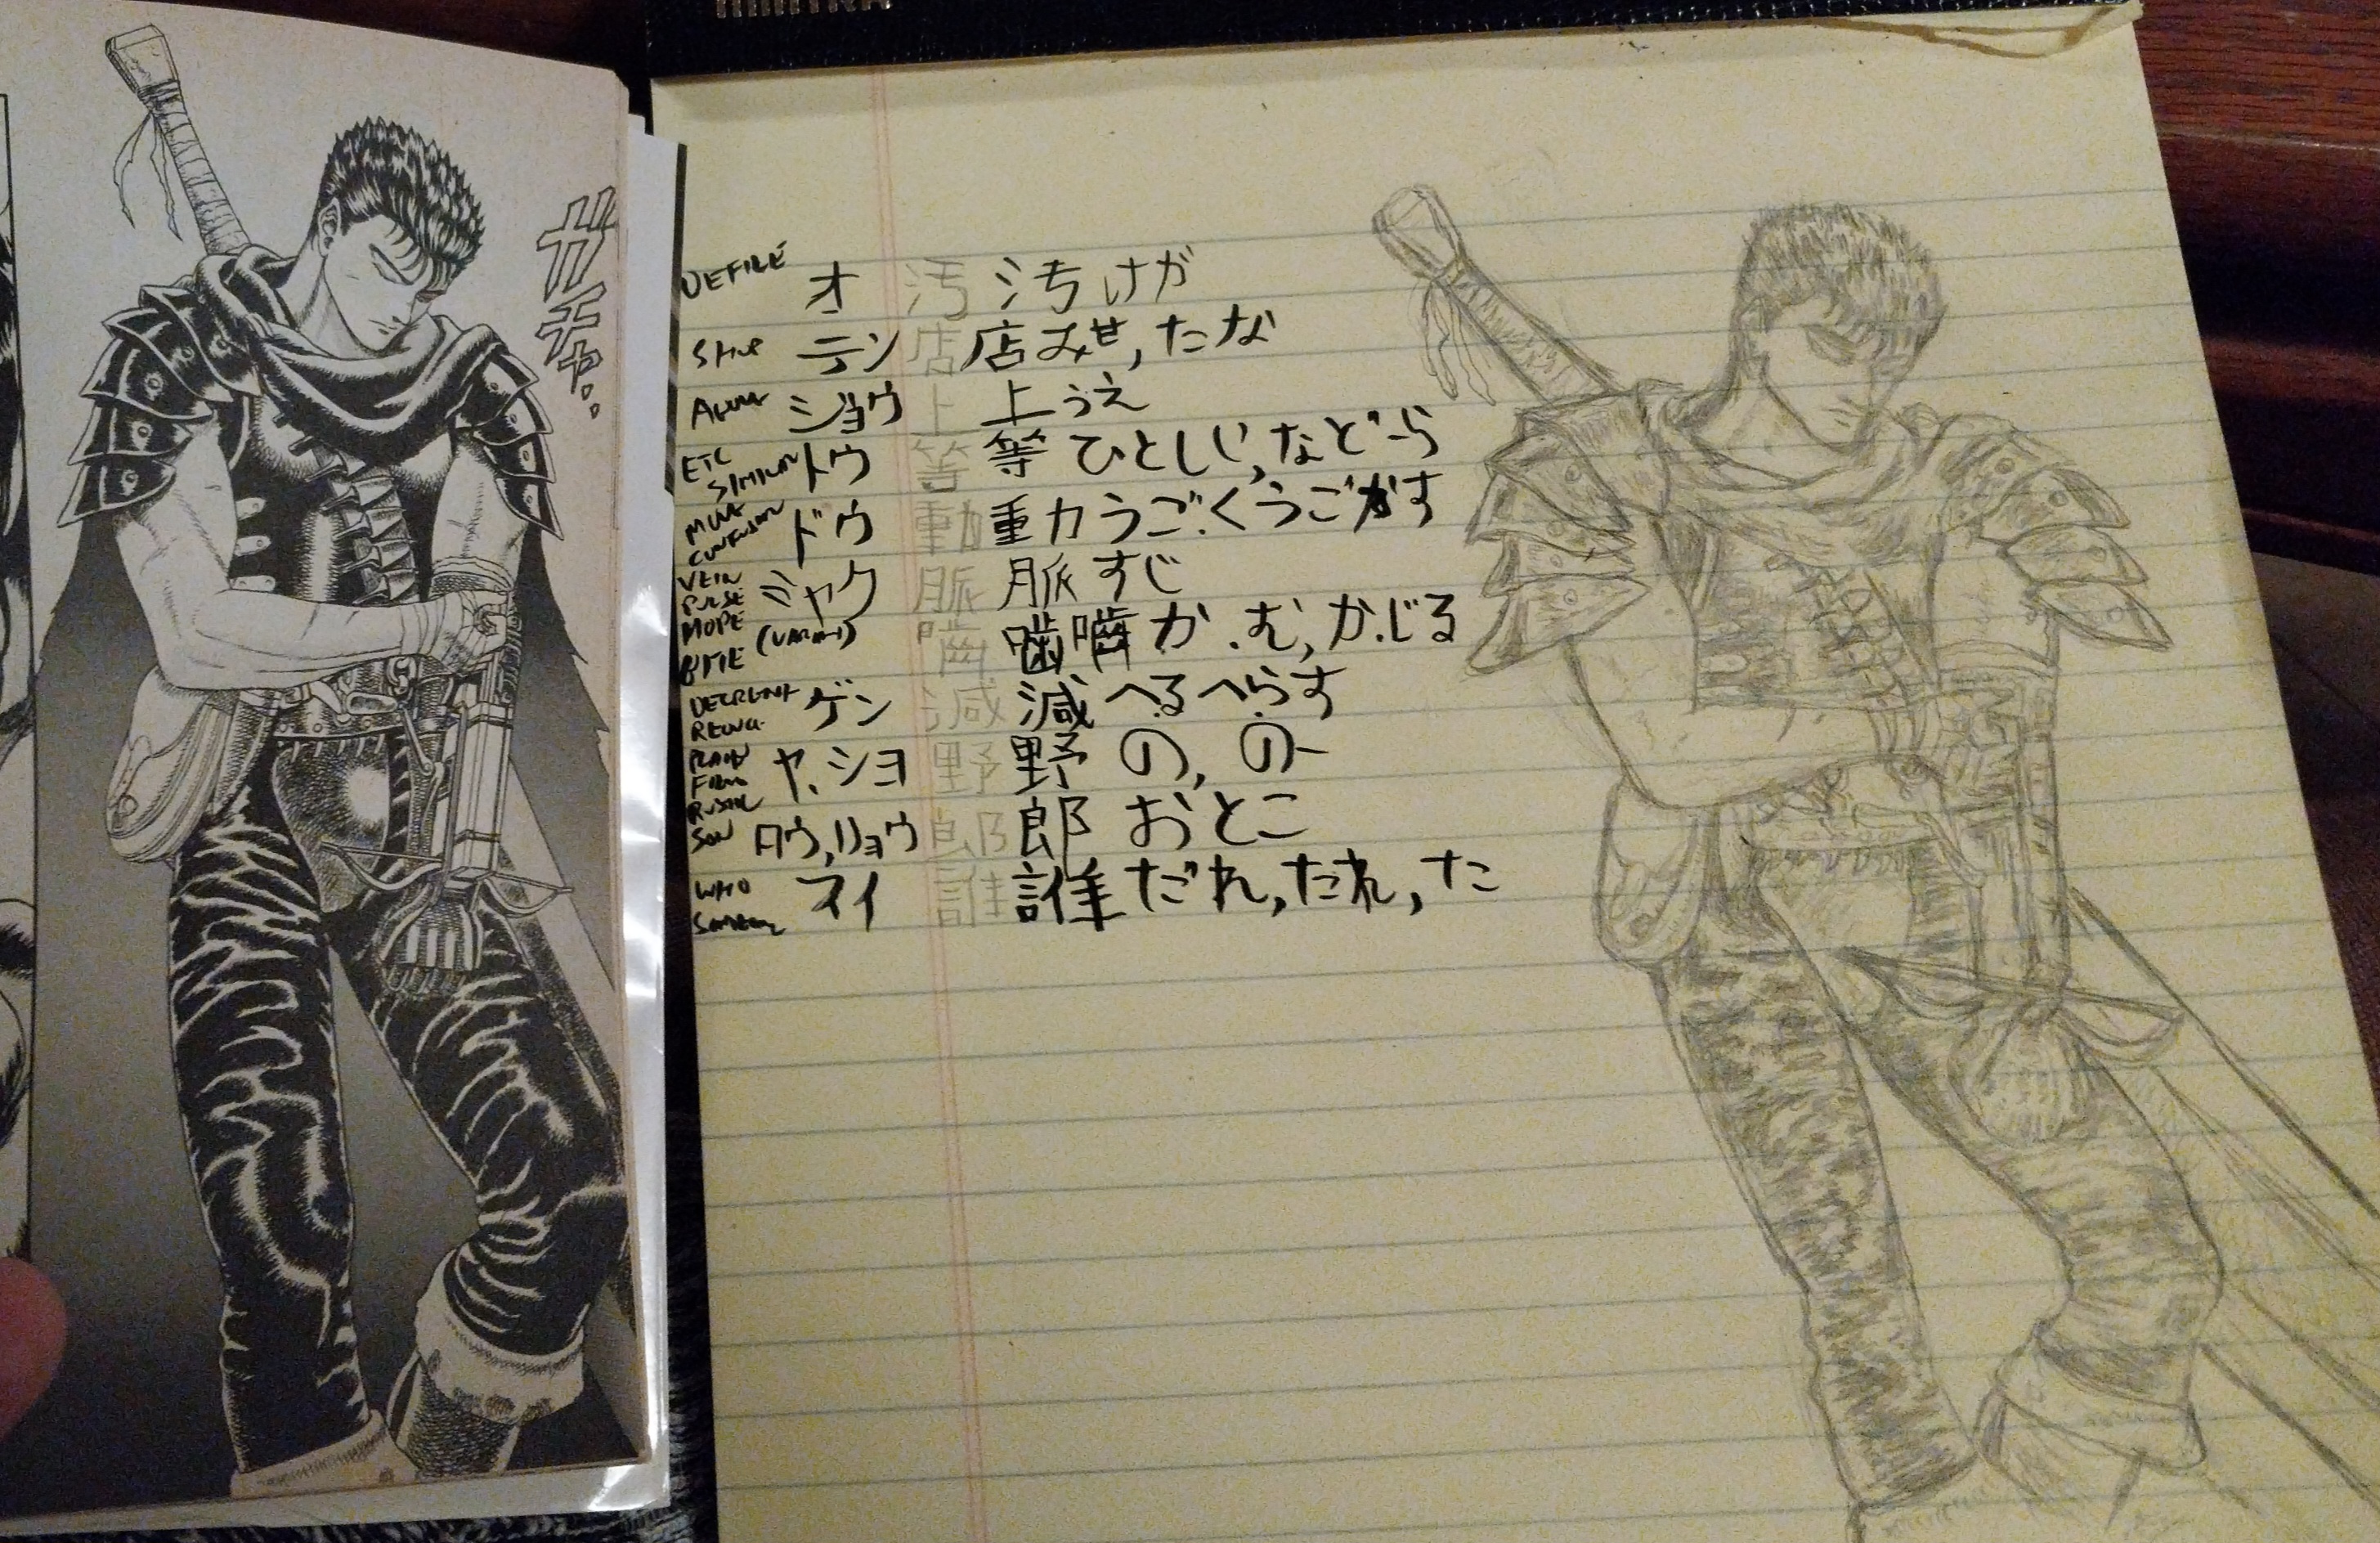 ガチャ..
DEFILE オ 汚 汚 けが
SHOP テン 店 店 みせ, たな
ABOVE ショウ 上 上 うえ
ETC SIMILAR トウ 等 等 ひとしい, など -ら
MOVE CONFUSION ドウ 動 動 うご.く うごかす
VEIN PULSE HOPE ミャク 脈 脈 すじ
BITE (VARIANT) 嚙 噛 嚙 か.む, か.じる
DECREMENT REDUCE ゲン 減 減 へ.る へ.らす
PLAIN FIELD RUSTIC ヤ, ショ 野 野 の, の-
SON ロウ, リョウ 郎 郎 おとこ
WHO SOMEONE スイ 誰 誰 だれ, たれ, た